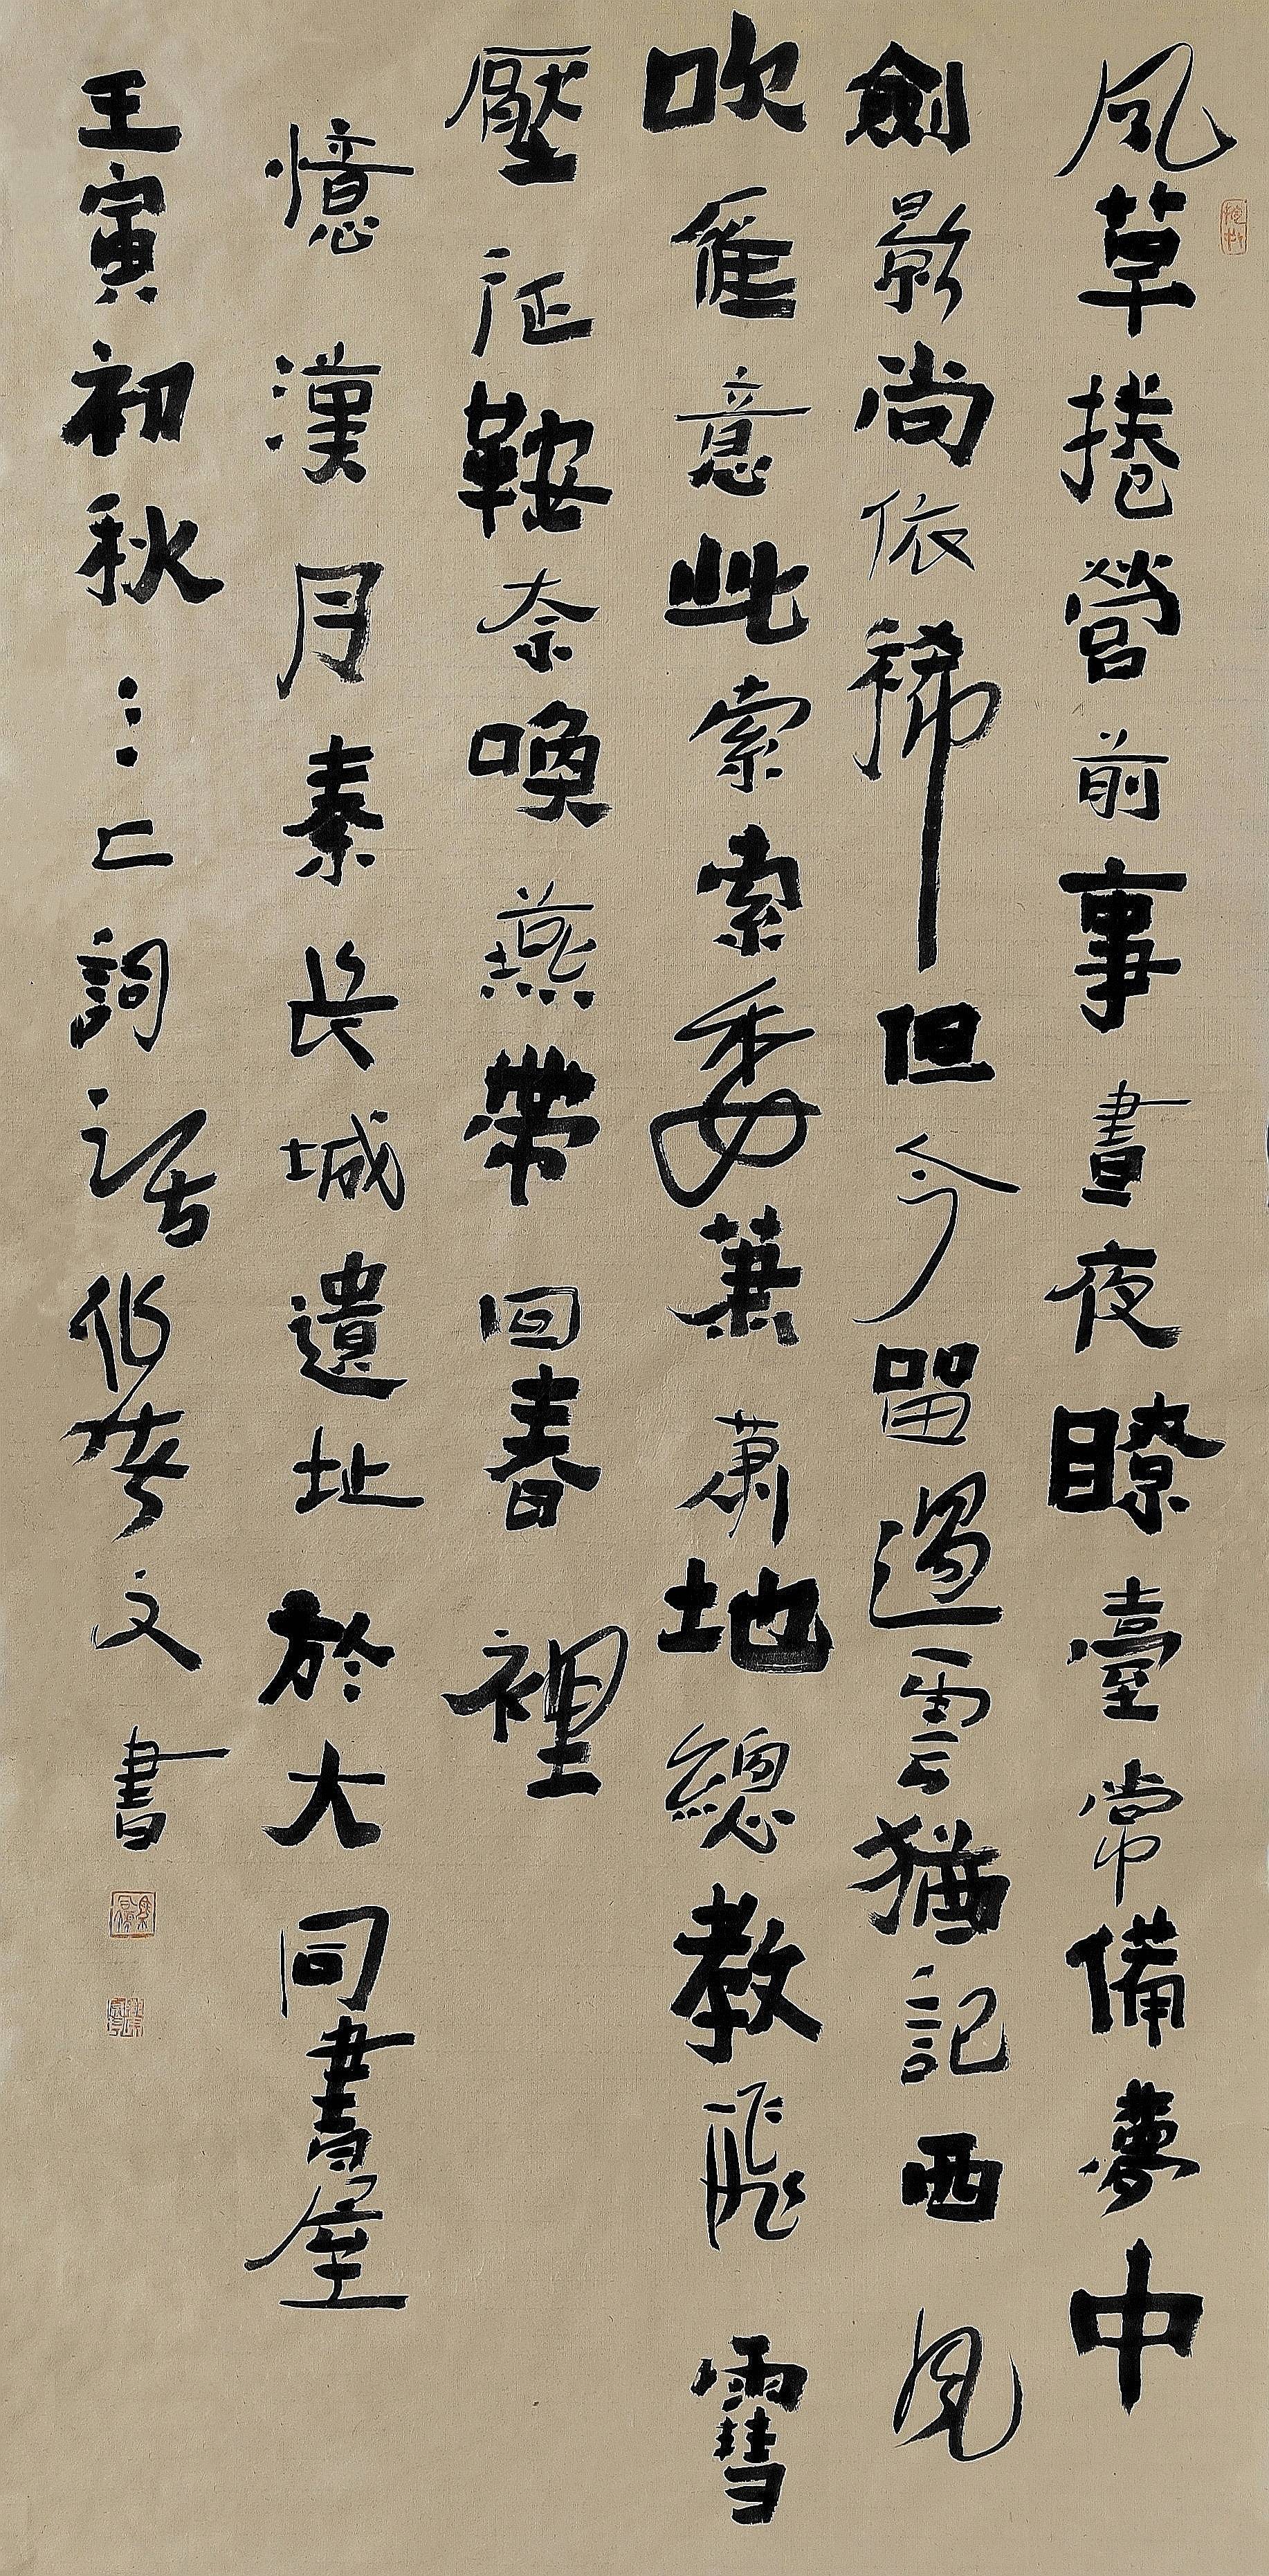 風草捲營前事晝夜瞭臺常備夢中
劍影尚依稀但今留過雲猶記西風
吹雁意此索索委葉蕭地總教飛雪
壓征鞍奈喚燕帶回春裡
憶漢月秦長城遺址於大同書屋
壬寅初秋 詞話 文書